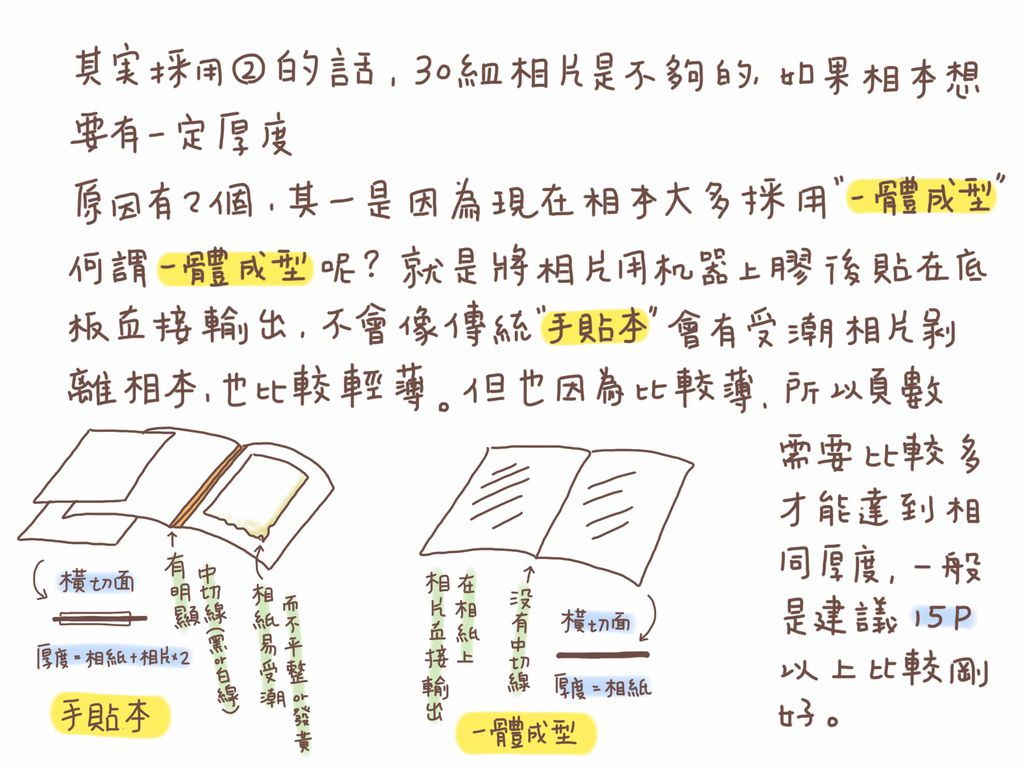 其实採用②的話,30組相片是不夠的,如果相本想
要有一定厚度
原因有2個,其一是因為現在相本大多採用"一體成型"
何謂一體成型呢?就是將相片用机器上膠後貼在底
板直接輸出,不會像傳統"手貼本"會有受潮相片剝
離相本,也比較輕薄。但也因為比較薄,所以頁數
需要比較多
才能達到相
同厚度,一般
是建議15P
以上比較剛
好。
橫切面
厚度=相紙+相片×2
手貼本
有明顯
中切線(黑or白線)
相紙易受潮
而不平整or發黃
相片直接輸出
在相紙上
没有中切線
橫切面
厚度=相紙
一體成型